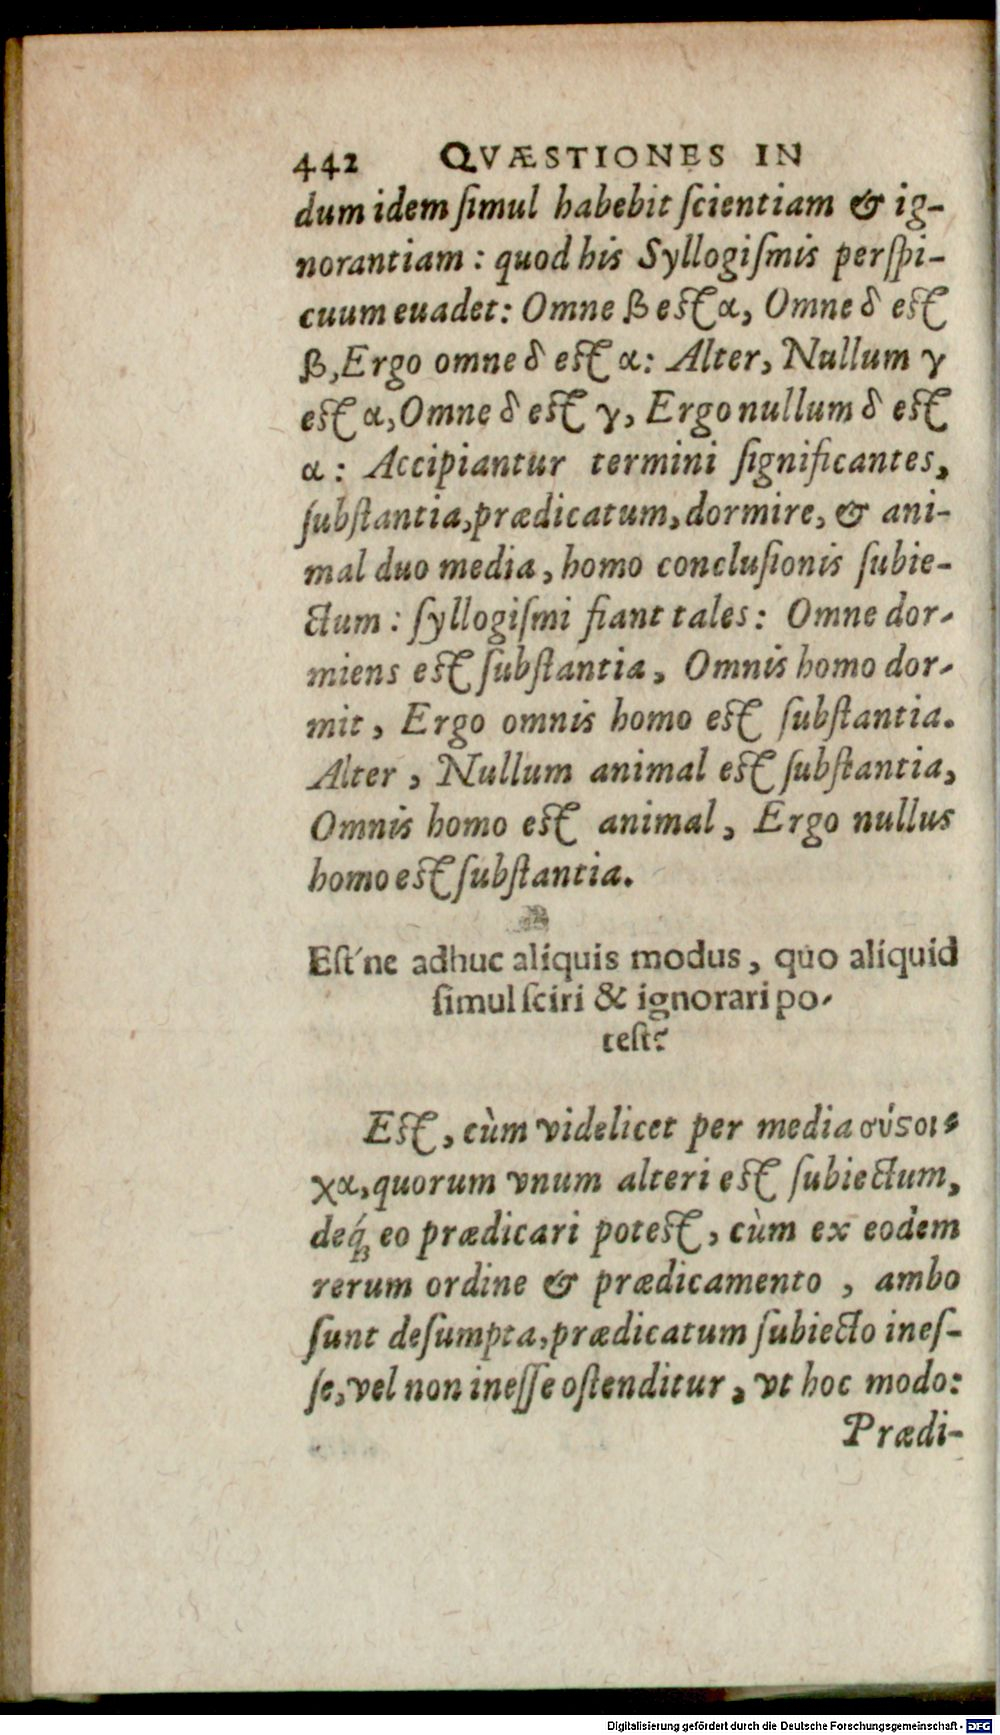 442 QVÆSTIONES IN
dum idem ſimul habebit ſcientiam & ig-
norantiam : quod his Syllogiſmis perſpi-
cuum euadet: Omne β eſt α, Omne δ eſt
β, Ergo omne δ eſt α: Alter, Nullum γ
eſt α, Omne δ eſt γ, Ergo nullum δ eſt
α: Accipiantur termini ſignificantes,
ſubſtantia, prædicatum, dormire, & ani-
mal duo media, homo concluſionis ſubie-
ctum: ſyllogiſmi fiant tales: Omne dor-
miens eſt ſubſtantia, Omnis homo dor-
mit, Ergo omnis homo eſt ſubſtantia.
Alter, Nullum animal eſt ſubſtantia,
Omnis homo eſt animal, Ergo nullus
homo eſt ſubſtantia.
Eſt'ne adhuc aliquis modus, quo aliquid
ſimul ſciri & ignorari po-
teſt?
Eſt, cùm videlicet per media σύϛοι-
χα, quorum vnum alteri eſt ſubiectum,
deq́ꝫ eo prædicari poteſt, cùm ex eodem
rerum ordine & prædicamento, ambo
ſunt deſumpta, prædicatum ſubiecto ineſ-
ſe, vel non ineſſe oſtenditur, vt hoc modo:
Prædi-
Digitalisierung gefördert durch die Deutsche Forschungsgemeinschaft - DFG